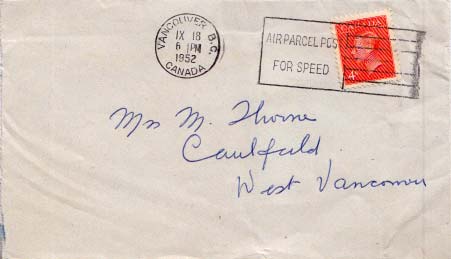 VANCOUVER B.C.
IX 18
6 PM
1952
CANADA
AIR PARCEL POS
FOR SPEED
CANADA
4
Mrs M. Thorne
Caulfeild
West Vancouver